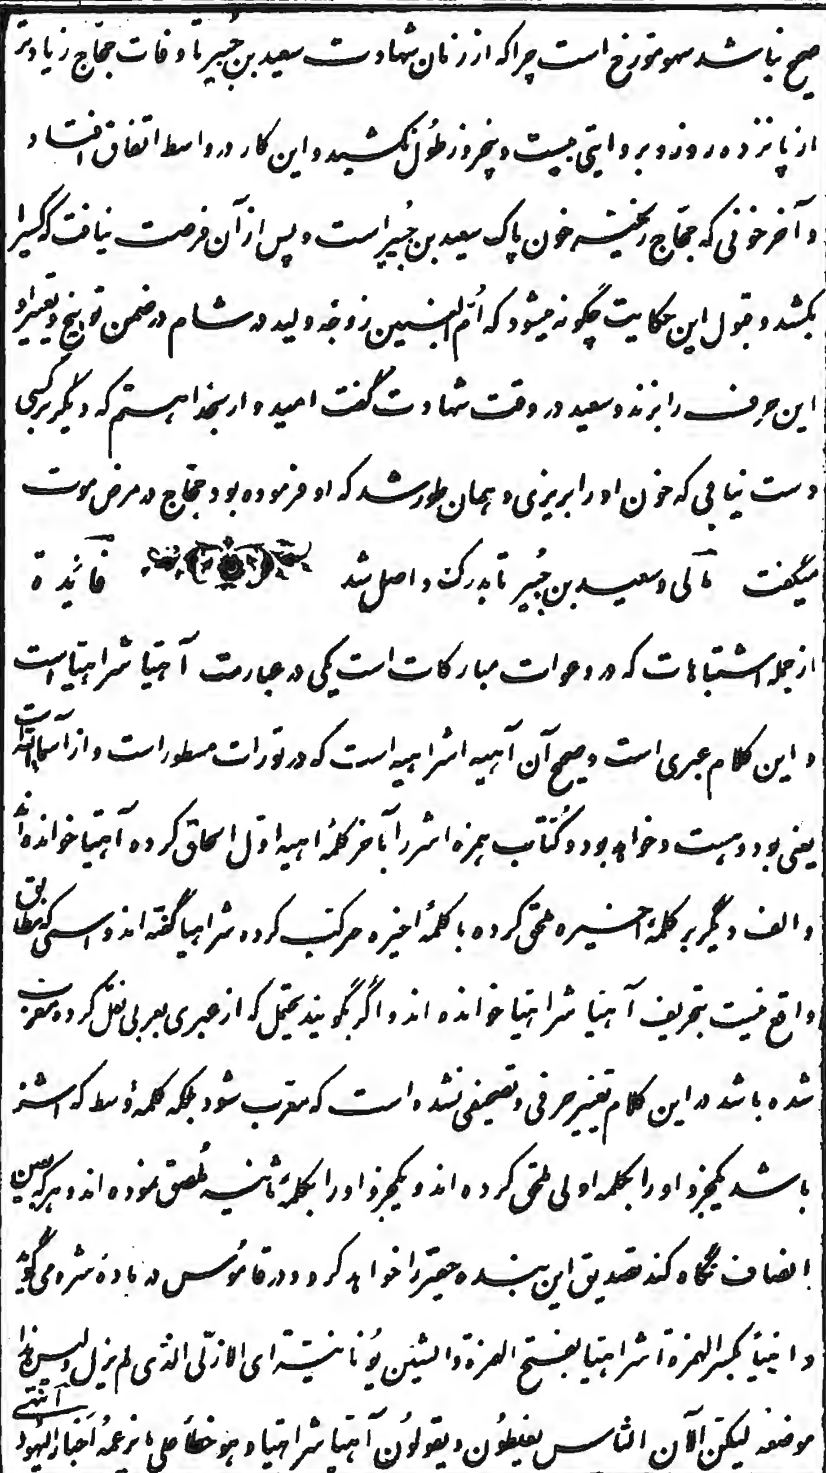 صحیح نباشد سهو مورّخ است چراکه از زمان شهادت سعید بن جُبیر تا وفات حجّاج زیادتر
از پانزده روز و بروایتی بیست و پنجروز طُول نکشید و این کار در واسط اتفاق افتاد
و آخر خونی که حجّاج ریخته خون پاک سعید بن جُبیر است و پس از آن فرصت نیافت که کسیرا
بکشد و قبول این حکایت چگونه میشود که اُمّ البنین زوجۀ ولید در شام در ضمن توبیخ و تعییر او
این حرف را بزند و سعید در وقت شهادت گفت امیدوار بخدا هستم که دیگر بر کسی
دست نیابی که خون او را بریزی و همان طور شد که او فرموده بود حجّاج در مرض موت
میگفت مٰالی و سعید بن جُبیر تا بدرک واصل شد فٰائدة
از جمله اشتباهات که در دعوات مبارکات است یکی در عبارت آهیّا شراهیّا است
و این کلام عبری است و صحیح آن آهیه اشر اهیه است که در تورات مسطور است و از آسماء الله است
یعنی بود و هست و خواهد بود و کُتّاب همزه اشر را بآخر کلمۀ اهیه اوّل الحاق کرده آهیّا خوانده‌اند
و الف دیگر بر کلمۀ اخیره ملحق کرده با کلمۀ اخیره مرکّب کرده شراهیا گفته‌اند و اسمی که مطابق
واقع نیست بتحریف آهیا شراهیّا خوانده‌اند و اگر بگویند یحتمل که از عبری بعربی نقل کرده معرّب
شده باشد در این کلام تغییر حرفی و تصحیفی نشده است که معرّب شود بلکه کلمۀ وسط که اشر
باشد یکجزو او را بکلمه اولی ملحق کرده‌اند و یکجزو او را بکلمۀ ثانیه مُلصق نموده‌اند و هر که بعین
انصاف نگاه کند تصدیق این بنده حقیر را خواهد کرد و در قاموس در مادۀ شره می‌گوید
و اهیا بکسر الهمزة اشراهیا بفتح الهمزة و الشین یُونانیّة ای الازلّی الذی لم یزل و لیس هذا
موضعه لیکن الآن الناس یغلطُون و یقولُون آهیا شراهیا و هو خطأ علی ما یزعمه اَحبار الیهُود انتهی